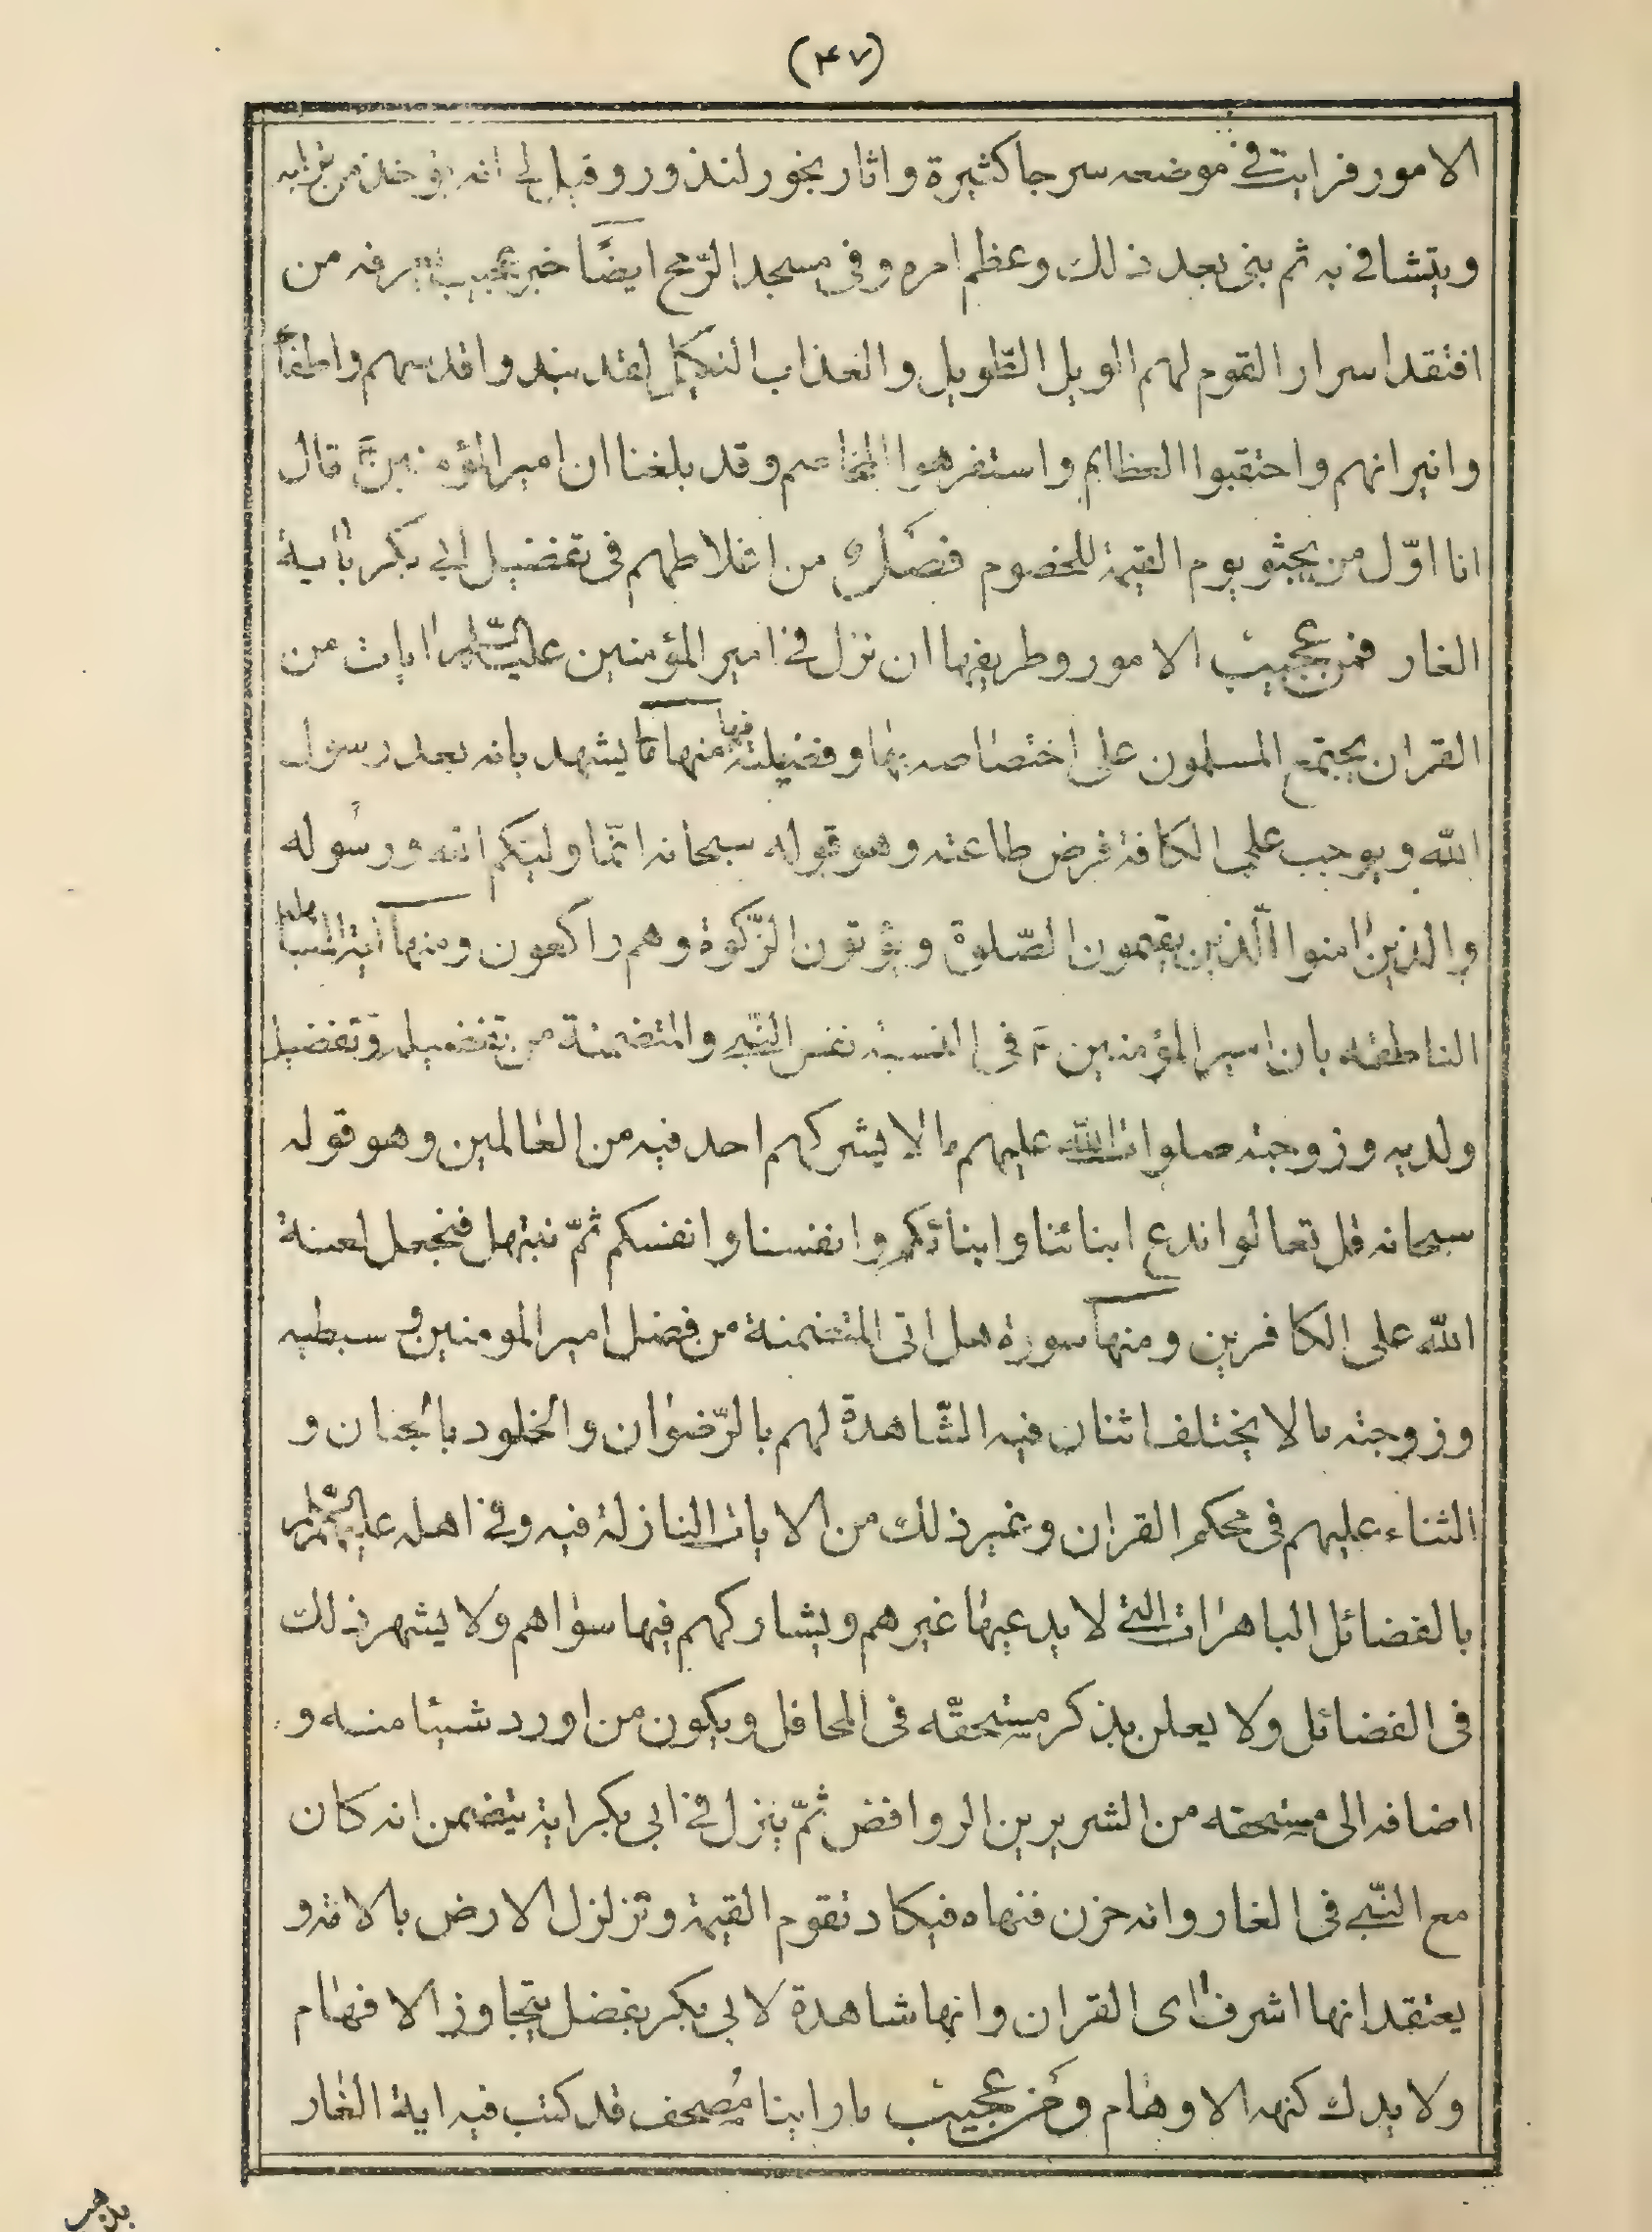 (۴۷)
الامور فرايت في موضعه سرجا كثيرة واثار بخور لنذور وقيل لي انه يوخذ من ترابه
ويتشافى به ثم بنى بعد ذلك وعظم امره وفى مسجد الرّمح ايضًا خبر عجيب يعرفه من
افتقد اسرار القوم لهم الويل الطّويل والعذاب النكيل لقد
وانيرانهم واحتقبوا العظائم واستفرهوا وقد بلغنا ان امير المؤمنين ع قال
انا اوّل من يجثو يوم القيمة للخصوم فصل من اغلاطهم فى تفضيل ابي بكر بآية
الغار فمن عجيب الامور وطريفها ان نزل في امير المؤمنين عليه السّلم ايات من
القران يجتمع المسلمون على اختصاصه بها وفضيلته فيها منها ما يشهد بانه بعد رسول
الله ويوجب على الكافة فرض طاعته وهو قوله سبحانه انّما وليكم الله ورسوله
والذين امنوا الّذين يقيمون الصّلوة ويؤتون الزّكوة وهم راكعون ومنها آية المباهلة
الناطقه بان امير المؤمنين ع فى النسبة نفس النّبي والمتضمنة من تفضيله وتفضيل
ولديه وزوجته صلوات الله عليهم ما لا يشركهم احد فيه من العالمين وهو قوله
سبحانه قل تعالوا ندع ابنائنا وابنائكم وانفسنا وانفسكم ثمّ نبتهل فنجعل لعنة
الله على الكافرين ومنها سورة هل اتى المتضمنة من فضل امير المومنين و سبطيه
وزوجته ما لا يختلف اثنان فيه الشّاهدة لهم بالرّضوان والخلود بالجنان و
الثناء عليهم فى محكم القران وغير ذلك من الايات النازلة فيه وفي اهله عليهم السّلم
بالفضائل الباهرات التي لا يدعيها غيرهم ويشاركهم فيها سواهم ولا يشهر ذلك
فى الفضائل ولا يعلن بذكر مستحقّه فى المحافل ويكون من اورد شيئا منه و
اضافه الى مستحقه من الشريرين الروافض ثمّ ينزل في ابى بكر اية يتضمن انه كان
مع النّبي فى الغار وانه حزن فنهاه فيكاد تقوم القيمة وتزلزل الارض بالامة و
يعتقد انها اشرف اى القران وانها شاهدة لابي بكر بفضل يتجاوز الافهام
ولا يدرك كنهه الاوهام ومن عجيب ما راينا مُصحف قد كتب فيه اية الغار
بذهب